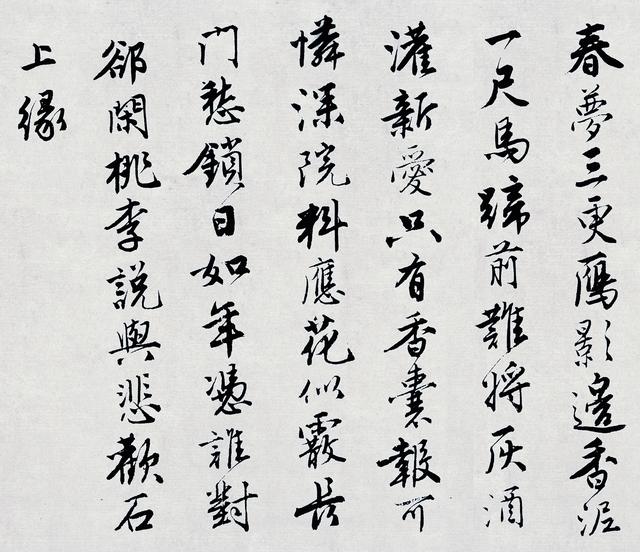 春夢三更鴈影邊香泥
一尺馬蹄前難將灰酒
灌新愛只有香囊報可
憐深院料應花似霰長
門愁鎖日如年憑誰對
郤閑桃李說與悲歡石
上緣